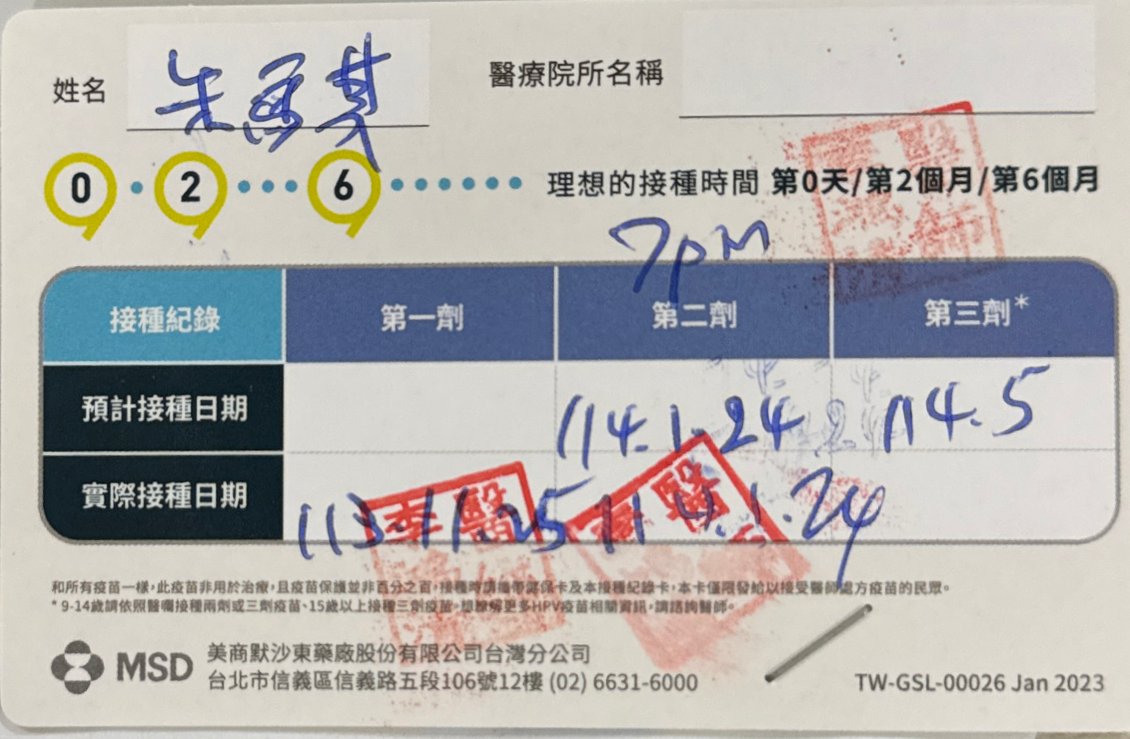 姓名 醫療院所名稱
0 2 6 理想的接種時間 第0天/第2個月/第6個月
7pm
接種紀錄 第一劑 第二劑 第三劑*
預計接種日期 114.1.24 114.5
實際接種日期 113.11.25 114.1.24
和所有疫苗一樣,此疫苗非用於治療,且疫苗保護並非百分之百,接種時請攜帶健保卡及本接種紀錄卡,本卡僅限發給以接受醫師處方疫苗的民眾。
* 9-14歲請依照醫囑接種兩劑或三劑疫苗、15歲以上接種三劑疫苗。想瞭解更多HPV疫苗相關資訊,請諮詢醫師。
MSD 美商默沙東藥廠股份有限公司台灣分公司
台北市信義區信義路五段106號12樓 (02) 6631-6000
TW-GSL-00026 Jan 2023